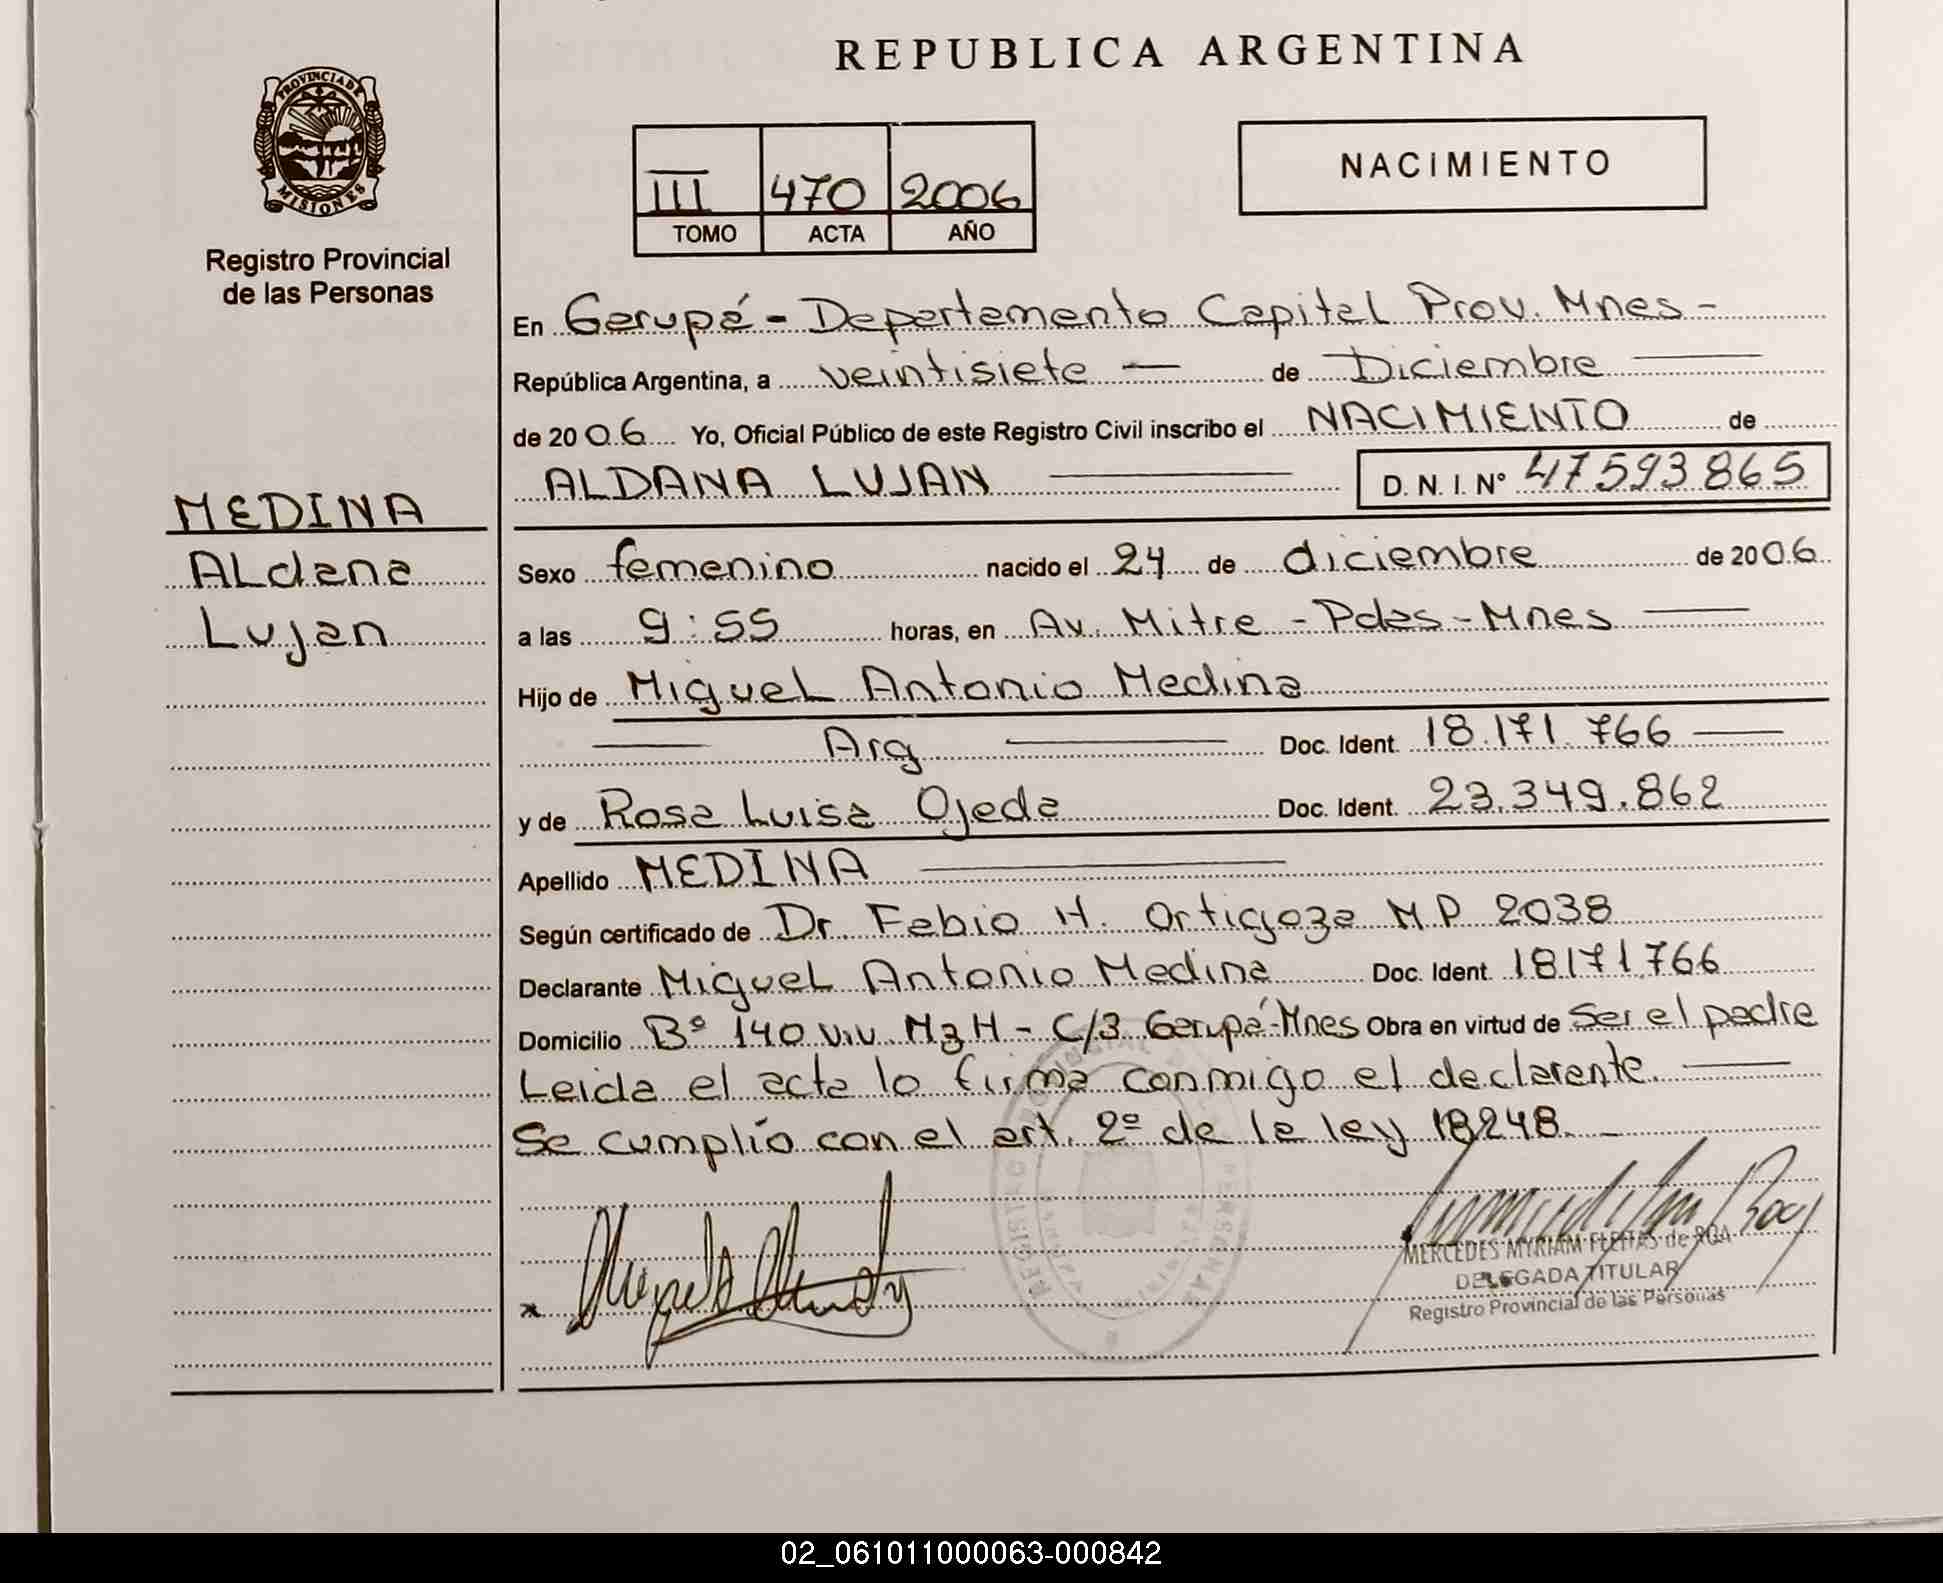 REPUBLICA ARGENTINA
PROVINCIA DE
MISIONES
Registro Provincial
de las Personas
III 470 2006
TOMO ACTA AÑO
NACIMIENTO
En Garupá - Departamento Capital Prov. Mnes -
República Argentina, a veintisiete — de Diciembre —
de 2006 Yo, Oficial Público de este Registro Civil inscribo el NACIMIENTO de
ALDANA LUJAN — D. N. I. N° 47593865
MEDINA
Aldana
Lujan
Sexo femenino nacido el 24 de diciembre de 2006
a las 9:55 horas, en Av. Mitre - Pdas - Mnes —
Hijo de Miguel Antonio Medina
— Arg — Doc. Ident. 18.171.766 —
y de Rosa Luisa Ojeda Doc. Ident. 23.349.862
Apellido MEDINA —
Según certificado de Dr. Fabio H. Ortigoza M.P 2038
Declarante Miguel Antonio Medina Doc. Ident. 18171.766
Domicilio B° 140 viv. Mz H - C/3 Garupá-Mnes Obra en virtud de Ser el padre
Leida el acta lo firma conmigo el declarante. —
Se cumplío con el art. 2º de la ley 18248. —
MERCEDES MYRIAM FLEITAS de ROA
DELEGADA TITULAR
Registro Provincial de las Personas
02_061011000063-000842